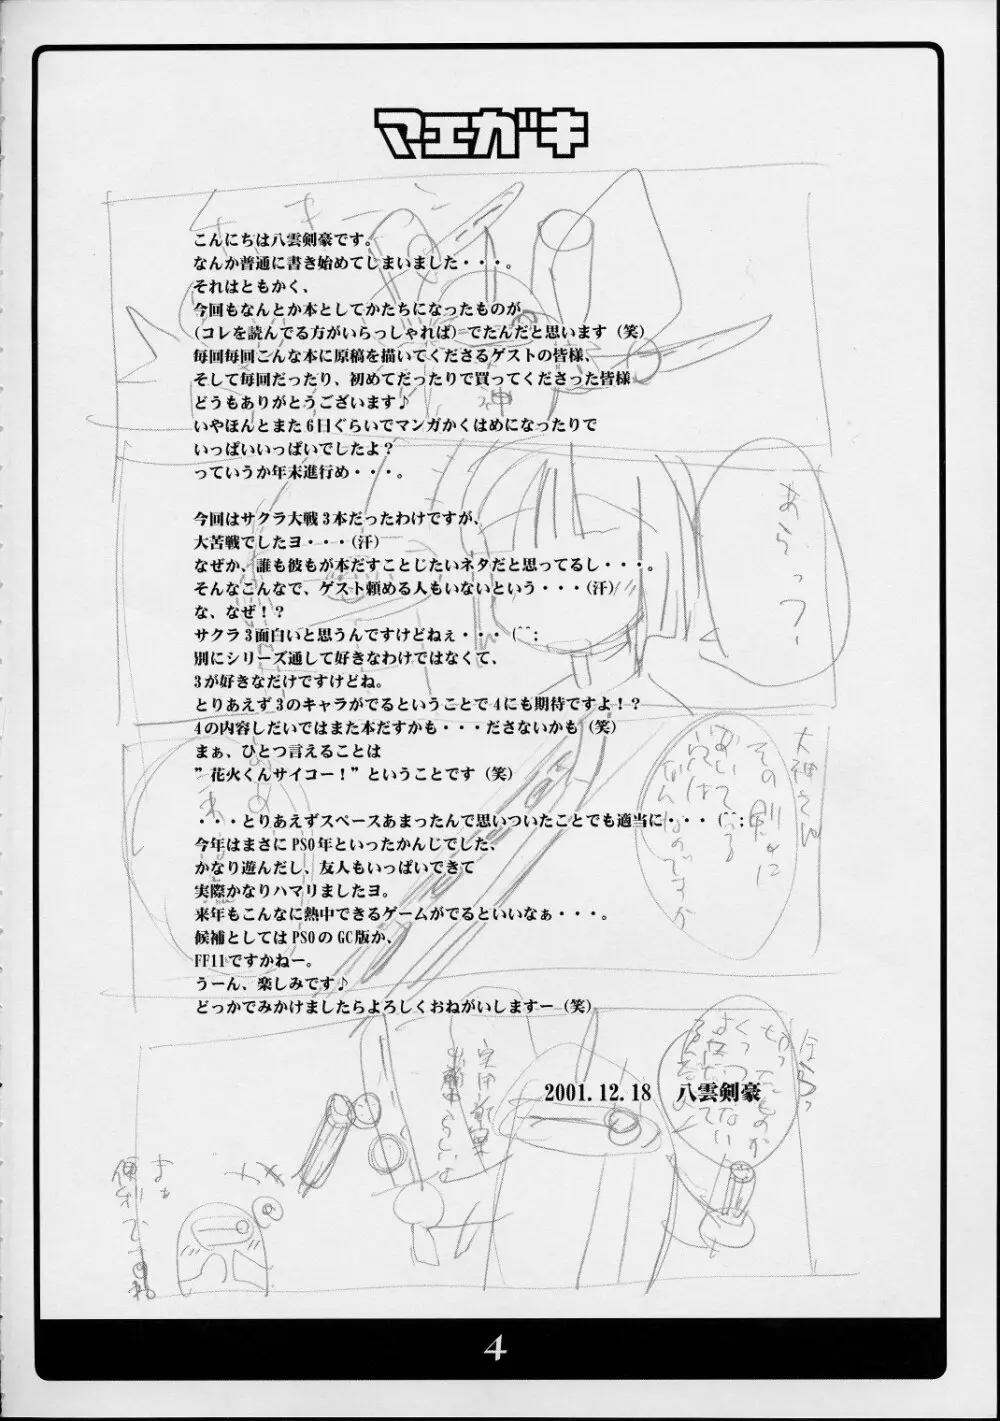 マエガキ
こんにちは八雲剣豪です。
なんか普通に書き始めてしまいました・・・。
それはともかく、
今回もなんとか本としてかたちになったものが
(コレを読んでる方がいらっしゃれば)でたんだと思います(笑)
毎回毎回こんな本に原稿を描いてくださるゲストの皆様、
そして毎回だったり、初めてだったりで買ってくださった皆様
どうもありがとうございます♪
いやほんとまた6日ぐらいでマンガかくはめになったりで
いっぱいいっぱいでしたよ?
っていうか年末進行め・・・。
今回はサクラ大戦3本だったわけですが、
大苦戦でしたヨ・・・(汗)
なぜか、誰も彼もが本だすことじたいネタだと思ってるし・・・。
そんなこんなで、ゲスト頼める人もいないという・・・(汗)
な、なぜ!?
サクラ3面白いと思うんですけどねぇ・・・(^^;
別にシリーズ通して好きなわけではなくて、
3が好きなだけですけどね。
とりあえず3のキャラがでるということで4にも期待ですよ!?
4の内容しだいではまた本だすかも・・・ださないかも(笑)
まぁ、ひとつ言えることは
"花火くんサイコー!"ということです(笑)
・・・とりあえずスペースあまったんで思いついたことでも適当に・・・(^^;
今年はまさにPSO年といったかんじでした、
かなり遊んだし、友人もいっぱいできて
実際かなりハマリましたヨ。
来年もこんなに熱中できるゲームがでるといいなぁ・・・。
候補としてはPSOのGC版か、
FF11ですかねー。
うーん、楽しみです♪
どっかでみかけましたらよろしくおねがいしますー(笑)
2001.12.18 八雲剣豪
あらっ
大神さん
その剣に
あいている
穴は
なんなのですか
まぁ
便利ですね
4